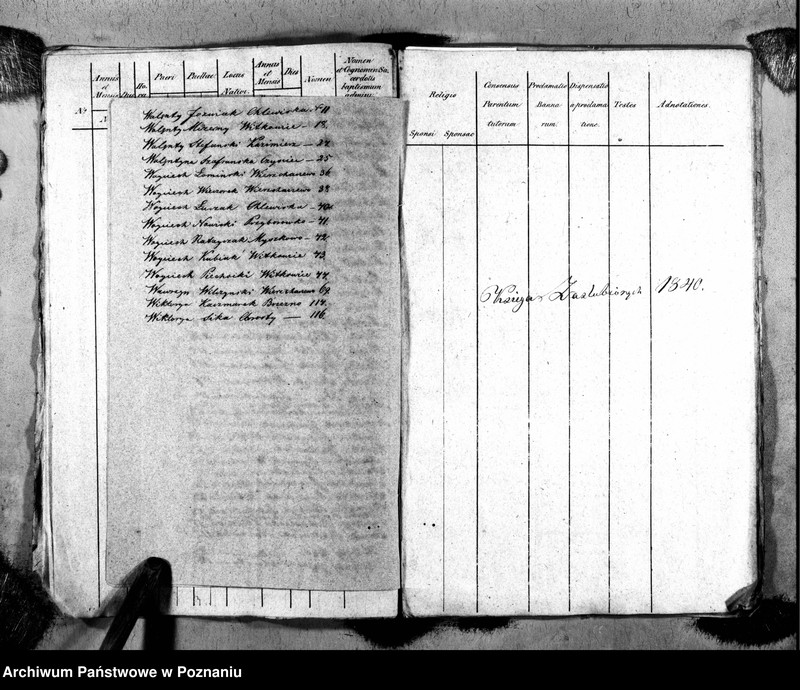 Nrus Annus et Mensis Dies Hora Pueri Puellae Locus Nativi. Annus et Mensis Dies Nomen Nomen et Cognomen Sacerdotis baptismum
Walenty Jozwiak Chlewiska 11
Walenty Witkowic — 18.
Walenty Stefanski Kazimierz —
Walentyna Szafranska — 25
Woyciech Łomiński Wierzchaczewo 36
Woyciech Wieczorek Wierzchaczewo 38.
Woyciech Chlewiska —
Woyciech Nawrocki Przyborowko — 41.
Woyciech Ratayczak Myszkowo — 42.
Woyciech Kubiak Witkowic 43.
Woyciech Piechocki Witkowic 44.
Wawrzyn Wierzchaczewo 69.
Wiktorya Kaczmarek Brzezno 114.
Wiktorya Sika Obrosty — 116.
Religio
Sponsi Sponsae
Consensus Parentum tutorum
Proclamatio Bannorum
Dispensatio a proclamatione.
Testes
Adnotationes.
Xsięga Zaslubionych 1840.
Archiwum Państwowe w Poznaniu